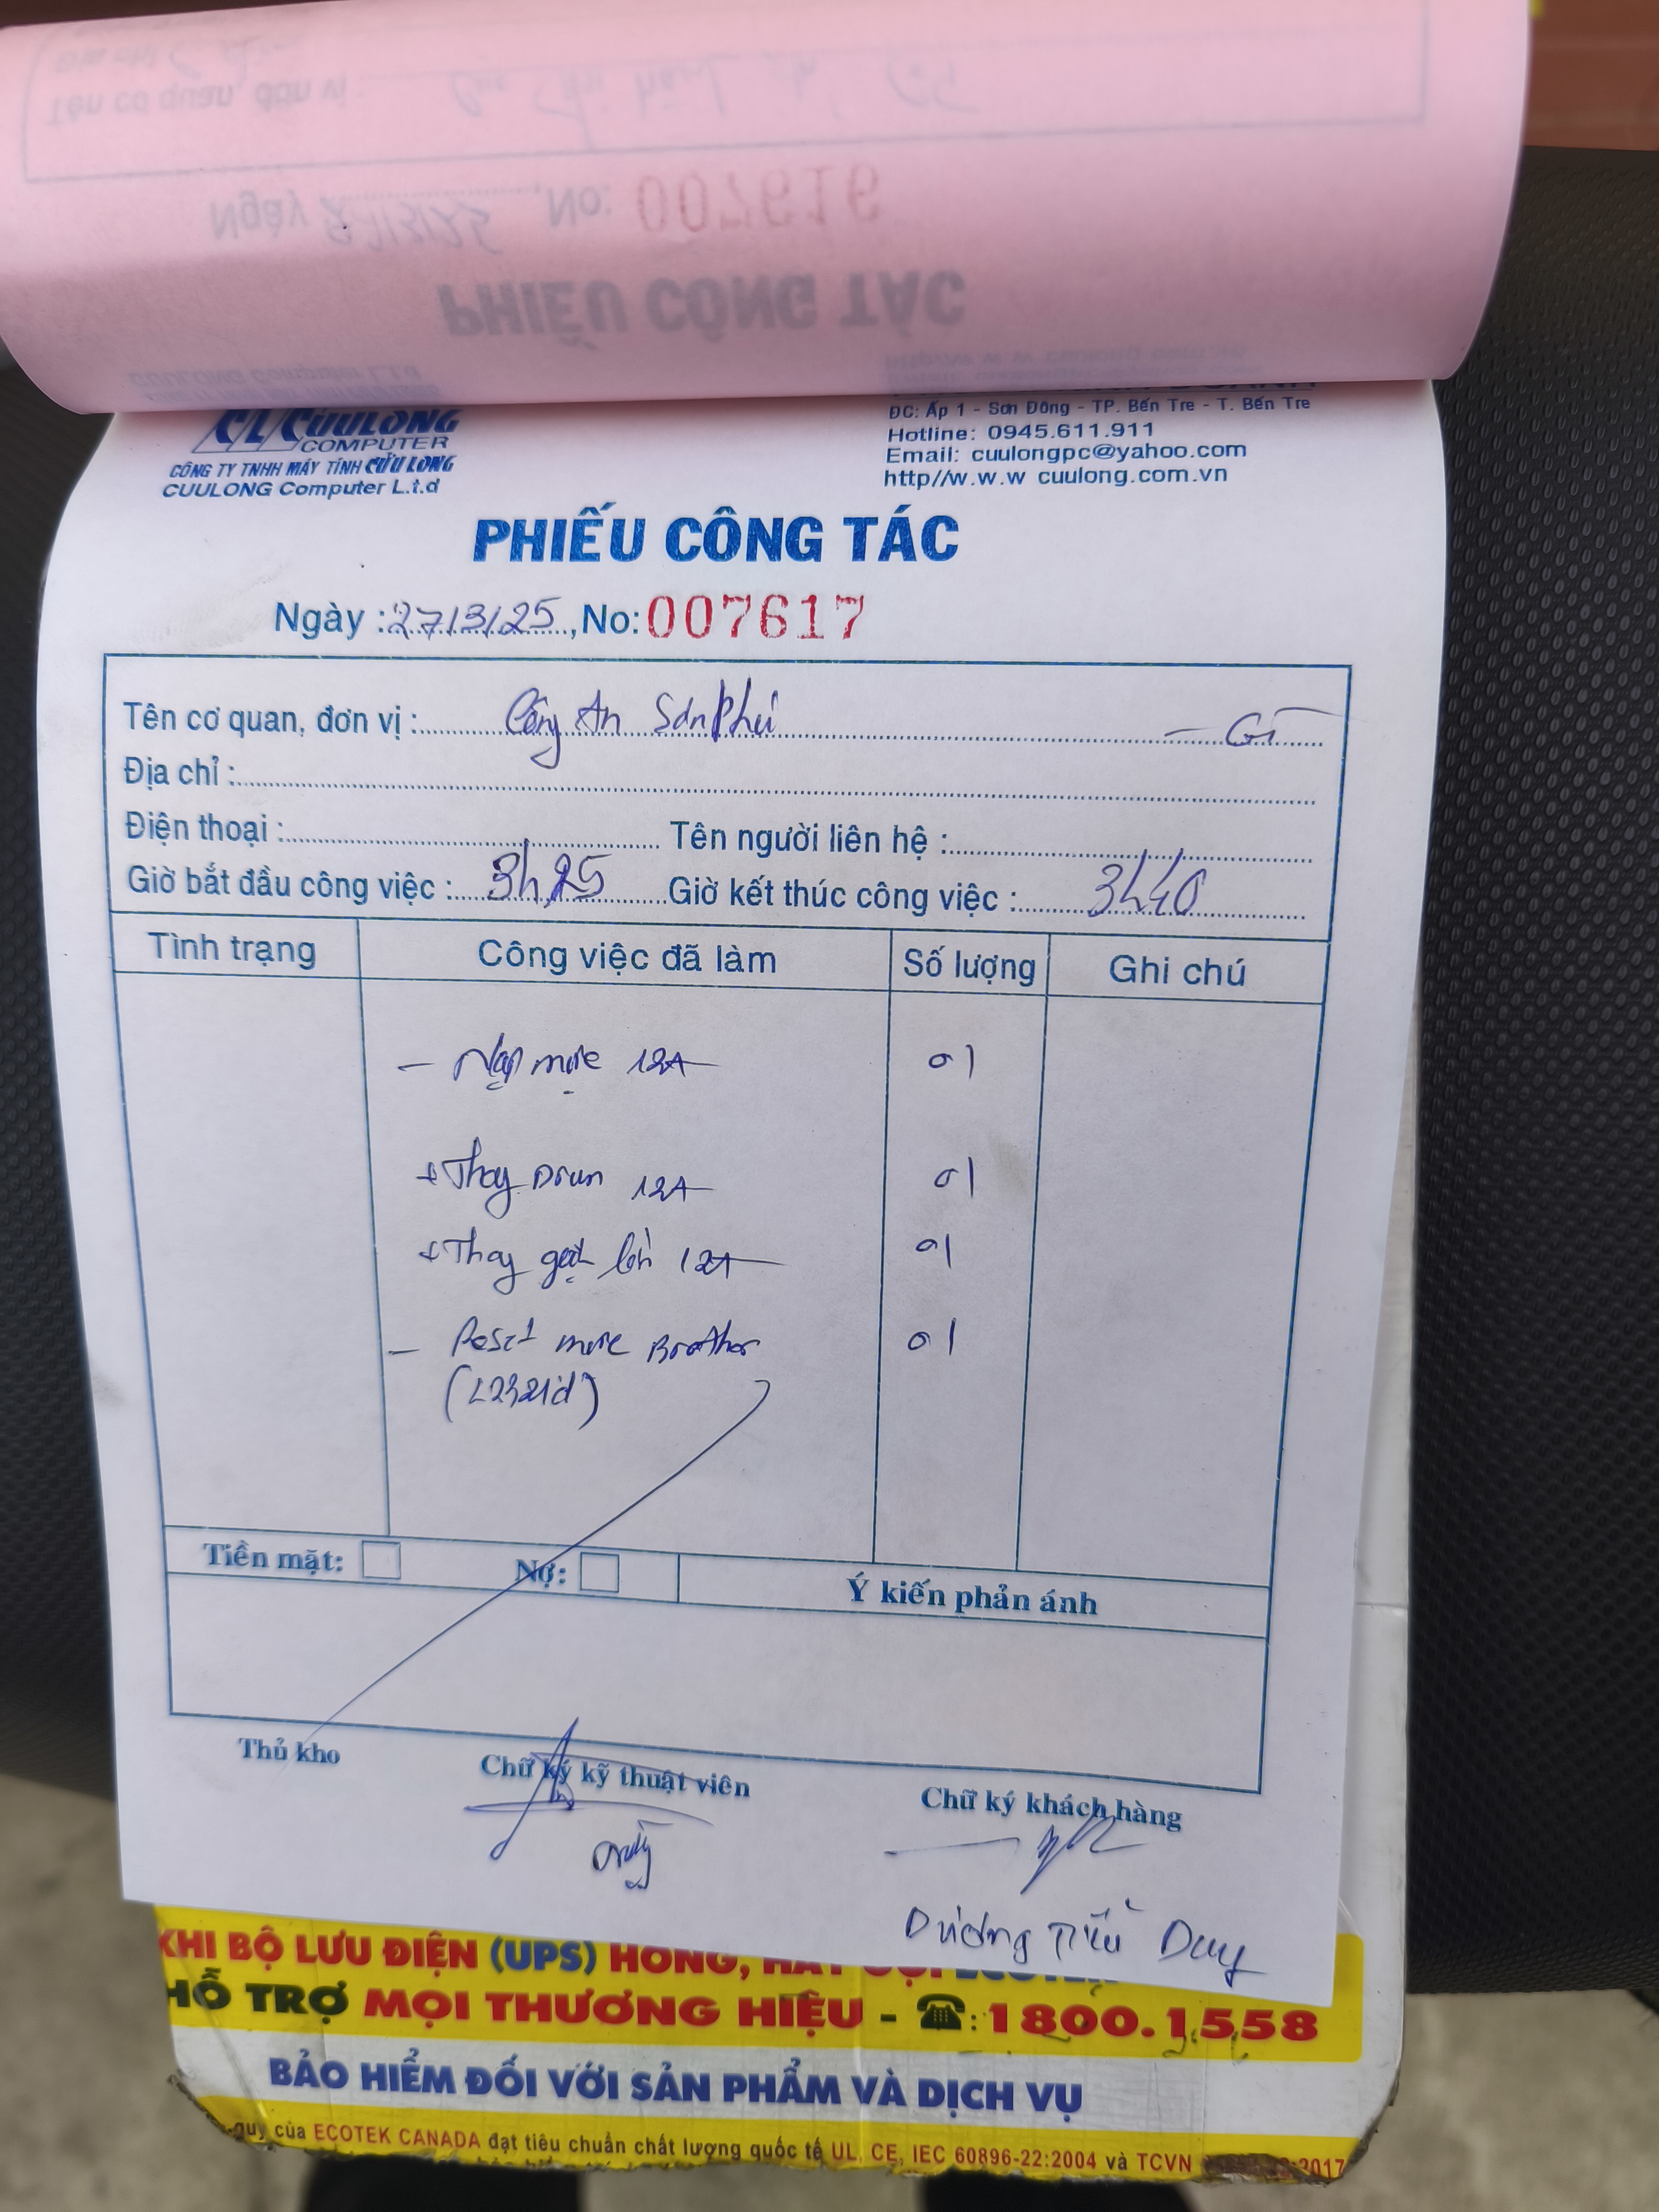 CUULONG
COMPUTER
CÔNG TY TNHH MÁY TÍNH CỬU LONG
CUULONG Computer L.t.d
ĐC: Ấp 1 - Sơn Đông - TP. Bến Tre - T. Bến Tre
Hotline: 0945.611.911
Email: cuulongpc@yahoo.com
http//w.w.w cuulong.com.vn
PHIẾU CÔNG TÁC
Ngày : 27/3/25, No: 007617
Tên cơ quan, đơn vị : Công An Sơn Phú - GT
Địa chỉ :
Điện thoại : Tên người liên hệ :
Giờ bắt đầu công việc : 3h25 Giờ kết thúc công việc : 3h40
Tình trạng Công việc đã làm Số lượng Ghi chú
- Nạp mực 12A 01
+ Thay Drum 12A 01
+ Thay gạt lớn 12A 01
- Reset mực Brother 01
(L2321d)
Tiền mặt: Nợ: Ý kiến phản ánh
Thủ kho Chữ ký kỹ thuật viên Chữ ký khách hàng
Dương Duy
KHI BỘ LƯU ĐIỆN (UPS) HỎNG,
HỖ TRỢ MỌI THƯƠNG HIỆU - ☎:1800.1558
BẢO HIỂM ĐỐI VỚI SẢN PHẨM VÀ DỊCH VỤ
quy của ECOTEK CANADA đạt tiêu chuẩn chất lượng quốc tế UL, CE, IEC 60896-22:2004 và TCVN :2017